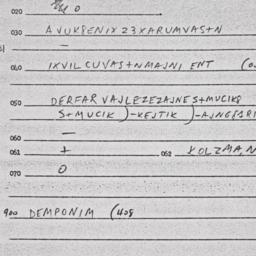 020 0
030 AVUKPENIX23XARUMVAS+N
—
040 IXVILCUVAS+NMAJNI ENT (0
050 DERFARVAJLEZEZAJNES+MUCIK8
S+MUCIK)-KEJTIK)-AJNG
060 —
061 + 062 KOLZMA,N
070 0
900 DEMPONIM (408